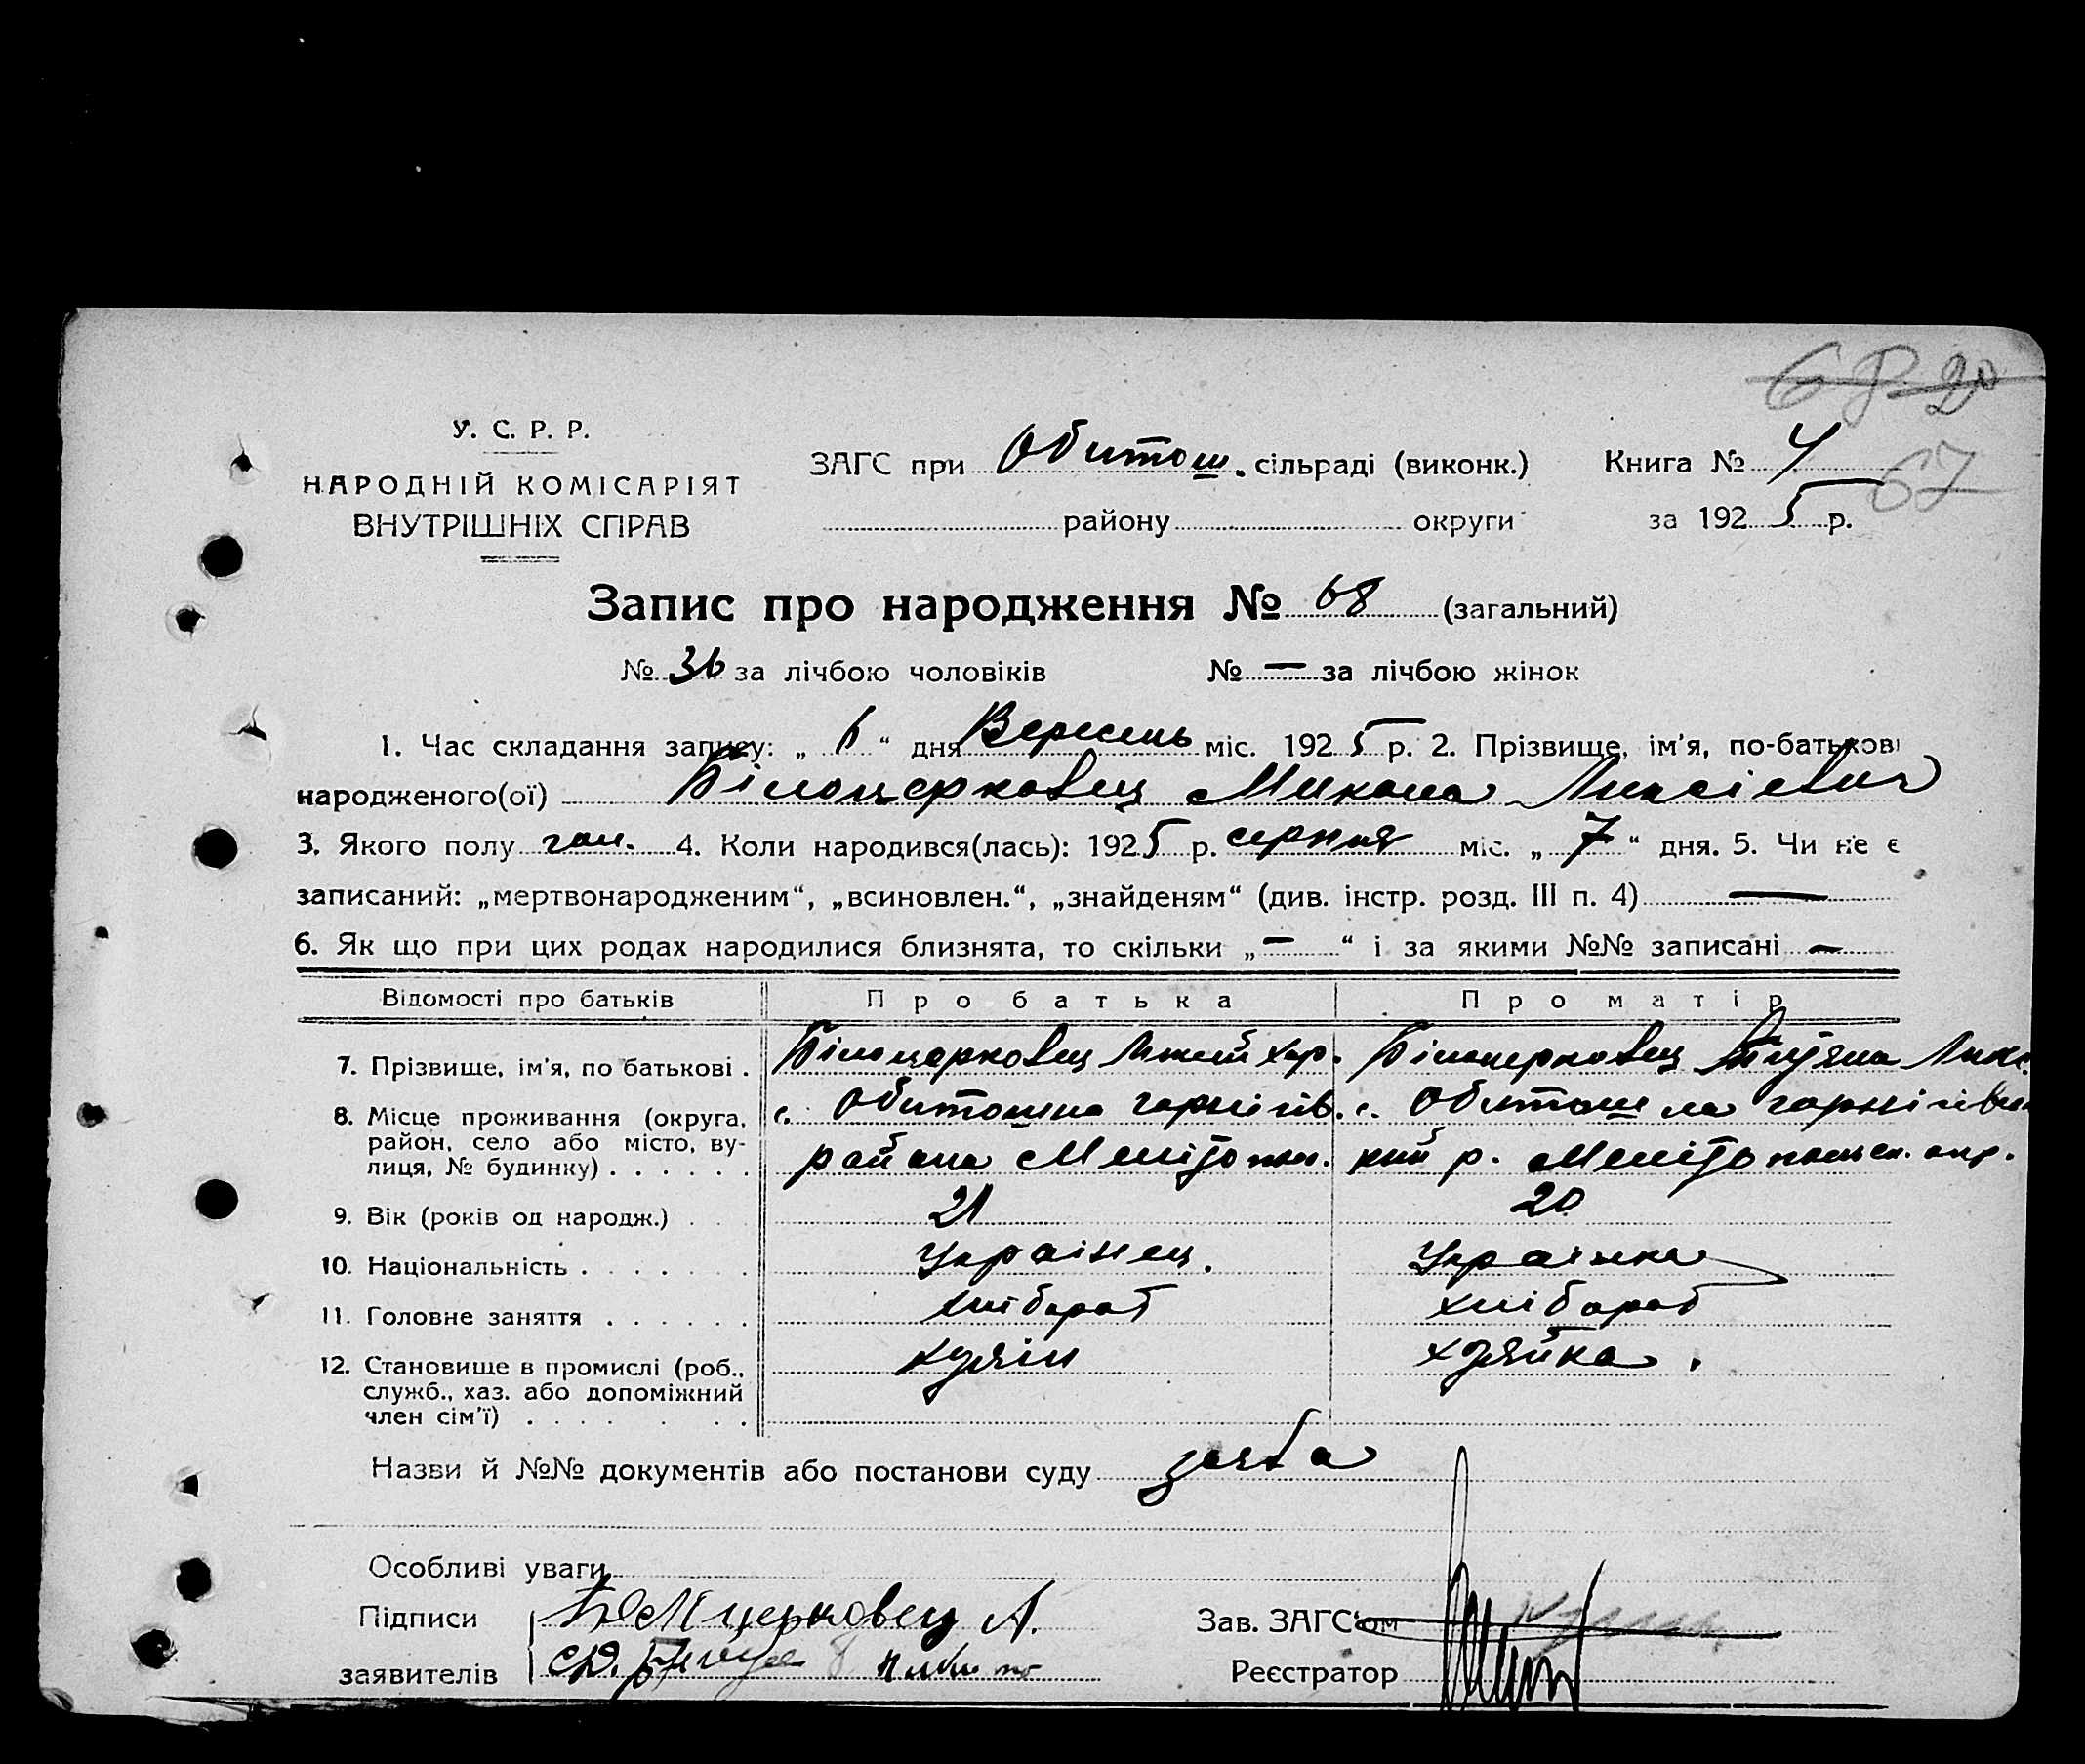 68 20
67
У. С. Р. Р.
НАРОДНІЙ КОМІСАРІЯТ
ВНУТРІШНІХ СПРАВ
ЗАГС при Обиточ. сільраді (виконк.) Книга № 4
району округи за 1925 р.
Запис про народження № 68 (загальний)
№ 36 за лічбою чоловіків № — за лічбою жінок
1. Час складання запису: „ 6 “ дня Вересень міс. 1925 р. 2. Прізвище, ім'я, по-батькові
народженого(ої) Білоцерковец Микола Ликсієвич
3. Якого полу чол. 4. Коли народився(лась): 1925 р. серпня міс. „ 7 “ дня. 5. Чи не є
записаний: „мертвонародженим“, „всиновлен.“, „знайденям“ (див. інстр. розд. III п. 4) —
6. Як що при цих родах народилися близнята, то скільки „ — “ і за якими №№ записані —
Відомості про батьків Про батька Про матір
7. Прізвище, ім'я, по батькові . Білоцерковец Хар. Білоцерковец Ликс.
8. Місце проживання (округа, с. с.
район, село або місто, ву- района Мелітопол. кий р. Мелітопольск. окр.
лиця, № будинку) . . . . . .
9. Вік (років од народж.) . . 21 20
10. Національність . . . . . . Українец. Українка
11. Головне заняття . . . . . . хлібороб хлібороб
12. Становище в промислі (роб., хузяін хузяйка.
служб., хаз. або допоміжний
член сім'ї) . . . . . . .
Назви й №№ документів або постанови суду заява
Особливі уваги
Підписи церковец А. Зав. ЗАГС'ом
заявителів Реєстратор